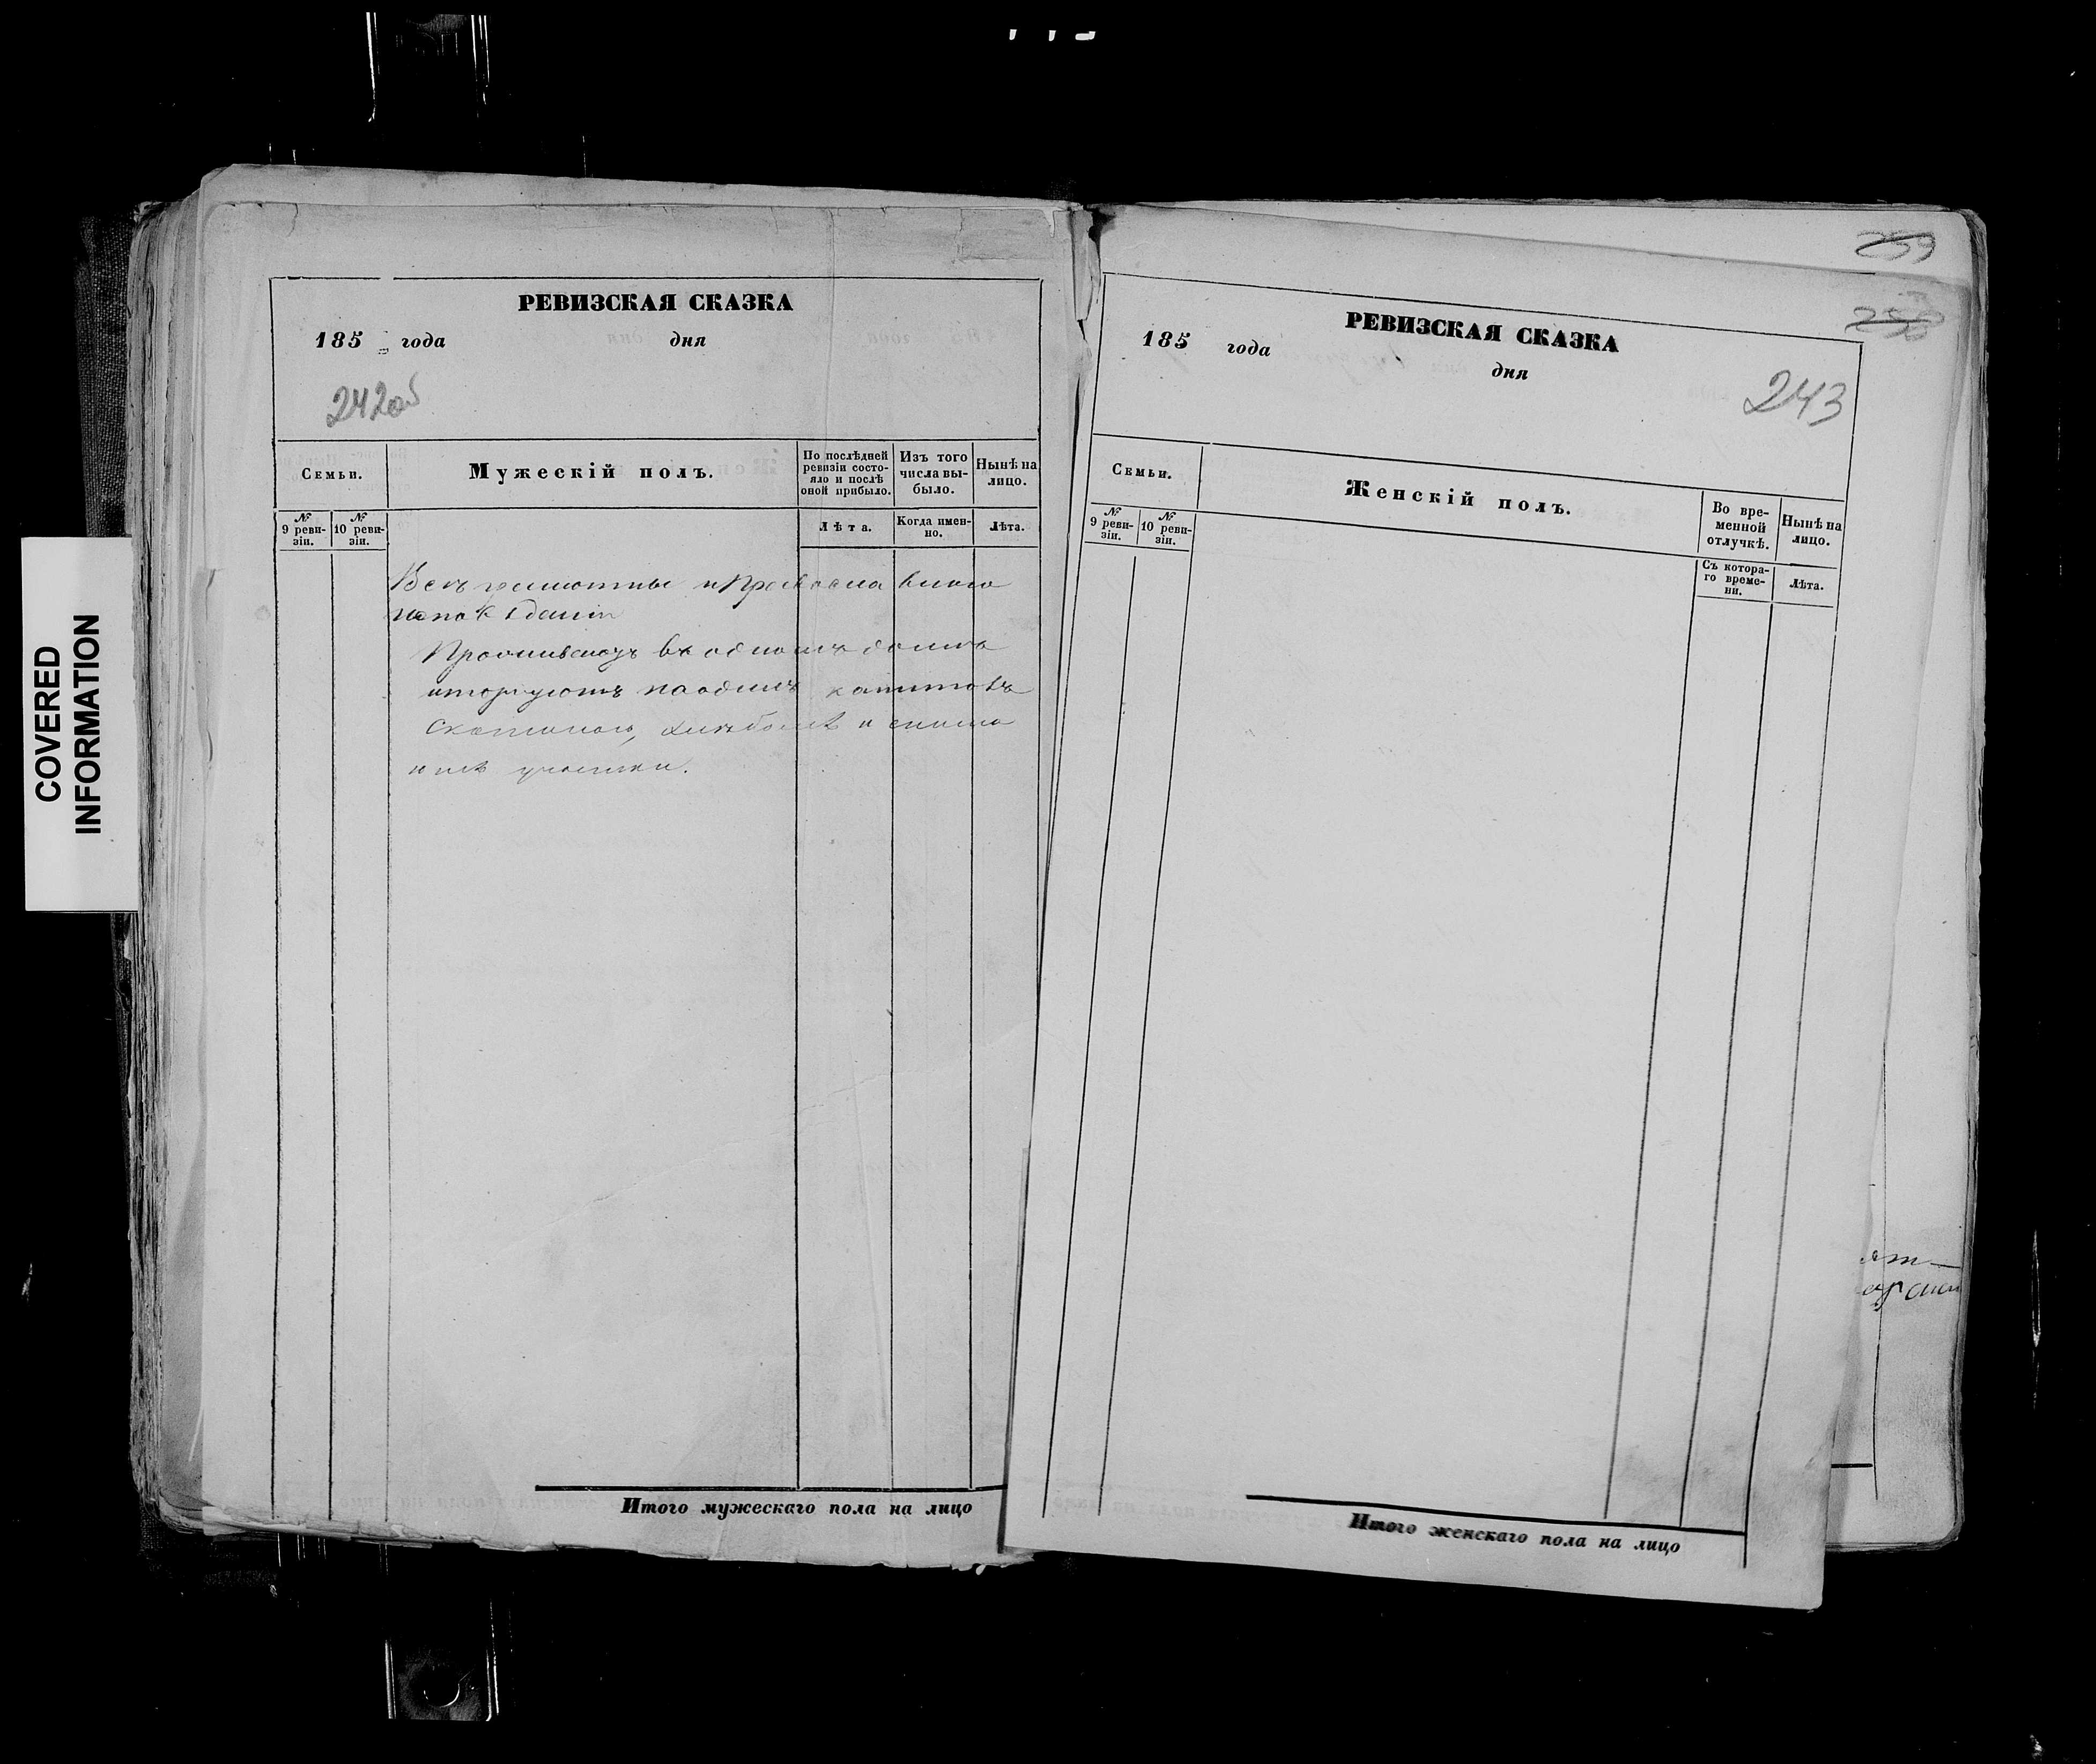 COVERED
INFORMATION
РЕВИЗСКАЯ СКАЗКА
185 года дня
242об
Семьи.
Мужескій полъ.
По послѣдней
ревизіи состо-
яло и послѣ
оной прибыло.
Изъ того
числа вы-
было.
Нынѣ на
лицо.
№
9 реви-
зіи.
№
10 реви-
зіи.
Лѣта.
Когда имен-
но.
Лѣта.
Всѣ грамотны и Православнаго
исповѣданія
Проживаютъ въ одномъ домѣ
и торгуютъ по одинъ капиталъ
Скотиною, хлѣбомъ и
Итого мужескаго пола на лицо
259
РЕВИЗСКАЯ СКАЗКА
185 года
дня
243
Семьи.
Женскій полъ.
Во вре-
менной
отлучкѣ.
Нынѣ на
лицо.
№
9 реви-
зіи.
№
10 реви-
зіи.
Съ котора-
го време-
ни.
Лѣта.
Итого женскаго пола на лицо